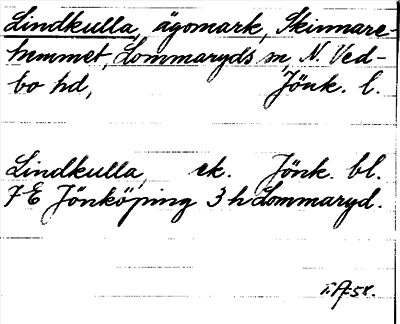 Lindkulla, ägomark, Skinnare-
hemmet, Lommaryds sn, N. Ved-
bo hd, Jönk. l.
Lindkulla, ek. Jönk. bl.
7E Jönköping 3 h Lommaryd.